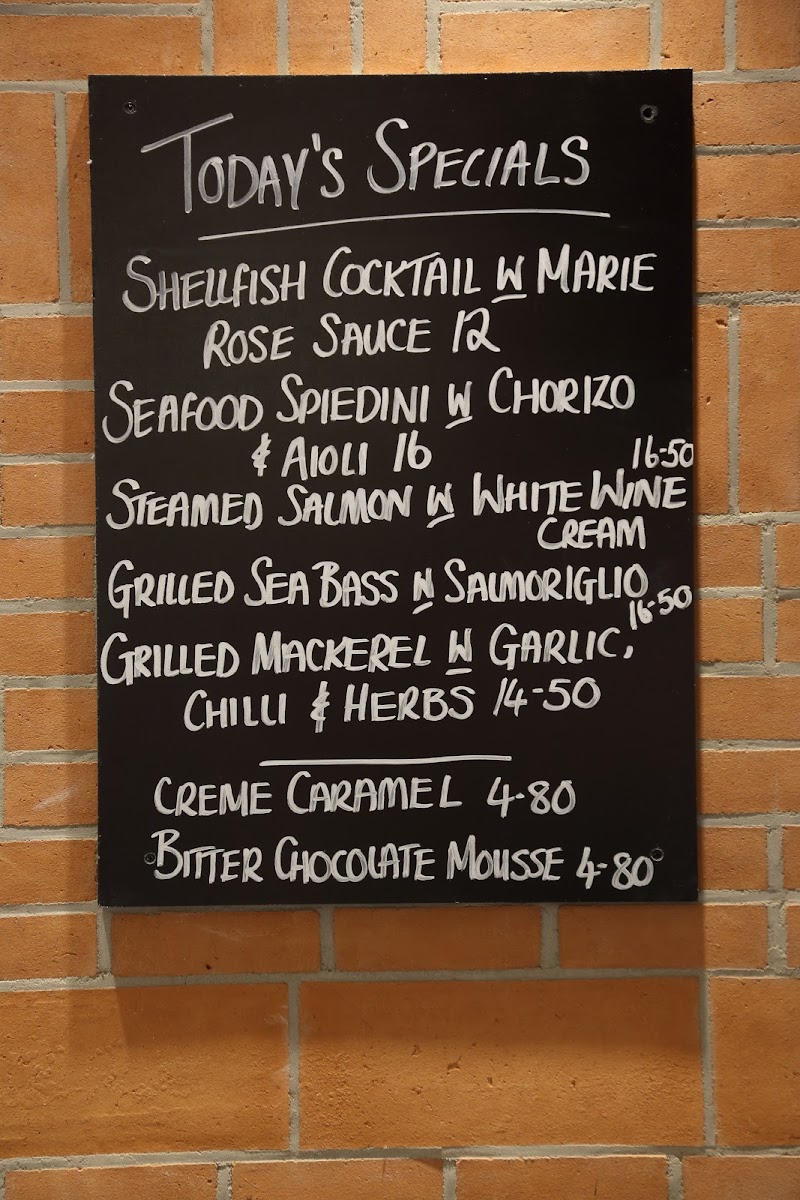 TODAY'S SPECIALS
SHELLFISH COCKTAIL W MARIE
ROSE SAUCE 12
SEAFOOD SPIEDINI W CHORIZO
& AIOLI 16
16-50
STEAMED SALMON W WHITE WINE
CREAM
GRILLED SEA BASS W SALMORIGLIO
16-50
GRILLED MACKEREL W GARLIC,
CHILLI & HERBS 14-50
CREME CARAMEL 4-80
BITTER CHOCOLATE MOUSSE 4-80